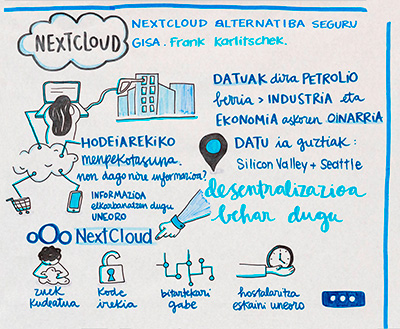 NEXTCLOUD
NEXTCLOUD ALTERNATIBA SEGURU
GISA. Frank Karlitschek.
DATUAK dira PETROLIO
berria > INDUSTRIA eta
EKONOMIA askoren OINARRIA
HODEIAREKIKO
menpekotasuna.
non dago nire informazioa?
DATU ia guztiak:
Silicon Valley + Seattle
INFORMAZIOA
elkarbanatzen dugu
UNEORO
desentralizazioa
behar dugu
NextCloud
zuek
kudeatua
kode
irekia
bitartekari
gabe
hostalaritza
eskaini uneoro